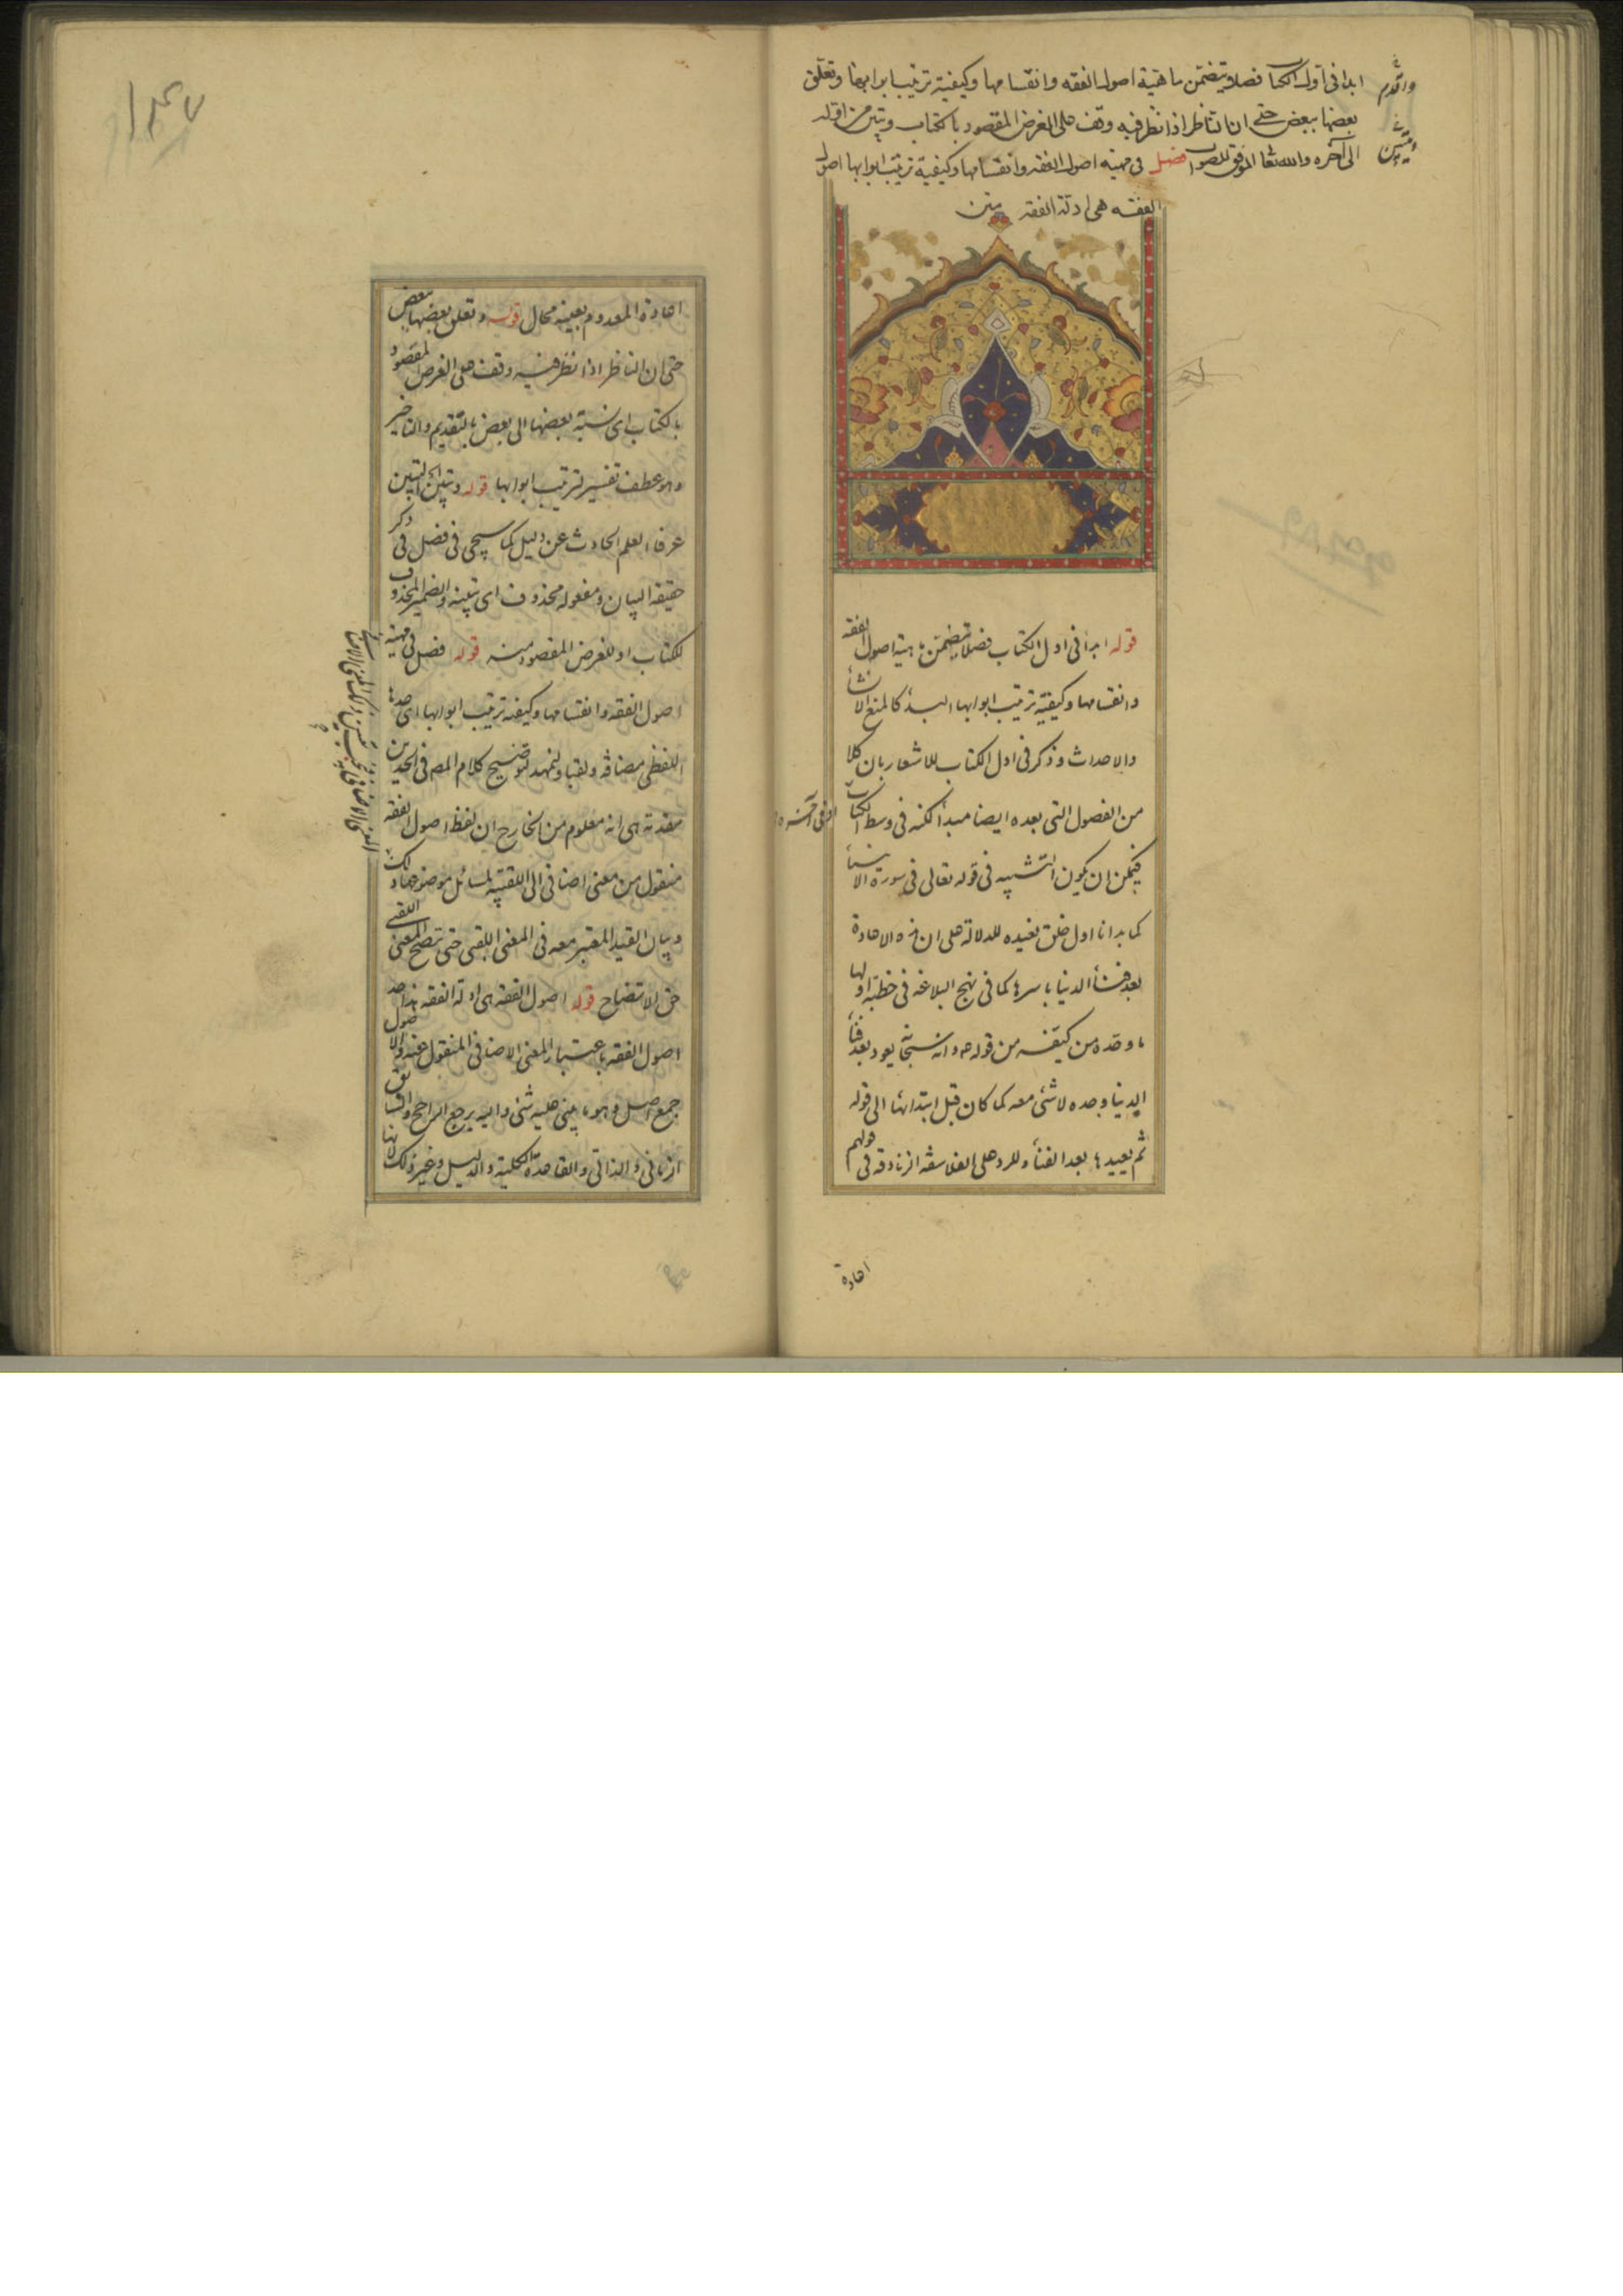 وأقدم
ابدا فى اول الكتاب فصلا يتضمن ماهية اصول الفقه وانقسامها وكيفية ترتيب ابوابها وتعلق
بعضها ببعض حتى ان الناظر اذا نظر فيه وقف على الغرض المقصود بالكتاب وتبين من اوله
الى آخره والله تعالى الموفق للصواب فصل فى مهية اصول الفقه وانقسامها وكيفية ترتيب ابوابها اصول
الفقه هى ادلة الفقه متن
قوله ابدأ فى اول الكتاب فصلا يتضمن ماهية اصول الفقه
وانقسامها وكيفية ترتيب ابوابها البدأ كالمنع الانشأ
والاحداث وذكر فى اول الكتاب للاشعار بان كلا
من الفصول التى بعده ايضا مبدأ لكنه فى وسط الكتاب
فيمكن ان يكون التشبيه فى قوله تعالى فى سورة الانبيأ
كما بدانا اول خلق نعيده للدلالة على ان هذه الاعادة
بعد فنأ الدنيا باسرها كما فى نهج البلاغة فى خطبة اولها
ما وحده من كيفه من قوله وانه سبحانه يعود بعد فنأ
الدنيا وحده لا شئ معه كما كان قبل ابتدائها الى قوله
ثم يعيدها بعد الفنأ وللرد على الفلاسفة الزنادقة فى قولهم
اعادة
اعادة المعدوم بعينه محال قوله وتعلق بعضها ببعض
حتى ان الناظر اذا نظر فيه وقف على الغرض المقصود
بالكتاب اى نسبة بعضها الى بعض بالتقديم والتاخير
وهو عطف تفسير لترتيب ابوابها قوله وتبين التبين
عرفا العلم الحادث عن دليل كما سيجى فى فصل فى ذكر
حقيقة البيان ومفعوله محذوف اى تبينه والضمير المحذوف
للكتاب او للغرض المقصود منه قوله فصل فى مهية
اصول الفقه وانقسامها وكيفية ترتيب ابوابها اى حدها
اللفظى مضافة ولقبا ولنمهد لتوضيح كلام المصـ فى الحدين
مقدمة هى انه معلوم من الخارج ان لفظ اصول الفقه
منقول من معنى اضافى الى اللقبية لمسائل موضوعها
وبيان القيد المعتبر معه فى المعنى اللقبى حتى يتضح المعنى اللقبى
حق الاتضاح قوله اصول الفقه هى ادلة الفقه هذا حد
اصول الفقه باعتبار المعنى الاضافى المنقول عنه والاصول
جمع اصل وهو ما يبنى عليه شئ واليه يرجع الراجح والسابق
الزمانى والذاتى والقاعدة الكلية والدليل وغير ذلك لانها